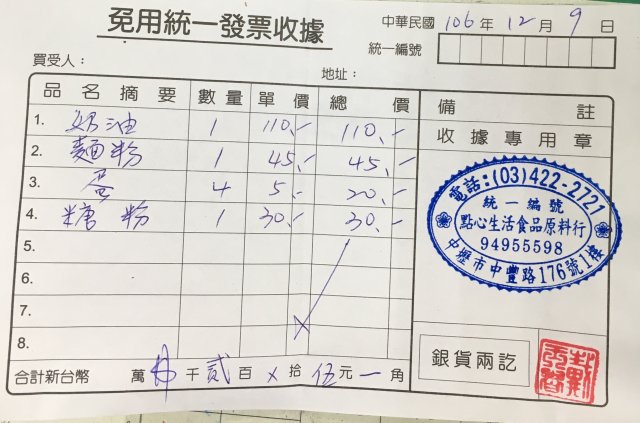 免用統一發票收據
中華民國 106 年 12 月 9 日
統一編號
買受人：
地址：
品名摘要 數量 單價 總價 備註
1. 奶油 1 110.- 110.-
收據專用章
2. 麵粉 1 45.- 45.-
3. 蛋 4 5.- 20.-
4. 糖粉 1 30.- 30.-
5.
6.
7.
8.
電話:(03)422-2721
統一編號
點心生活食品原料行
94955598
中壢市中豐路176號1樓
銀貨兩訖
合計新台幣 萬 千 貳 百 x 拾 伍 元 一 角